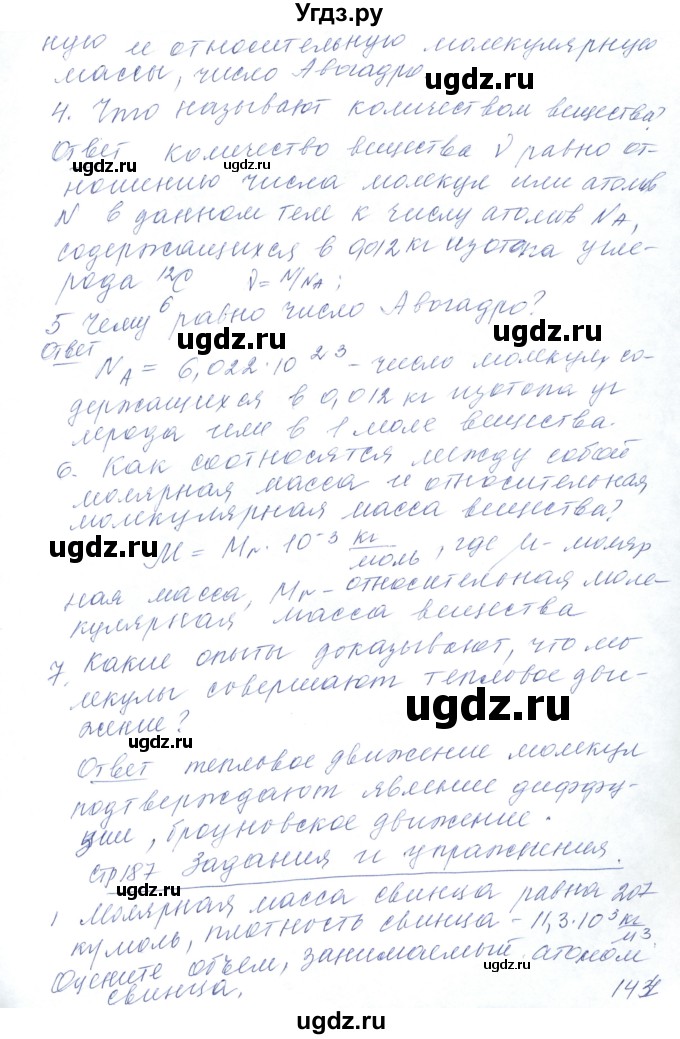 Угдз.ру
ную и относительную молекулярную
массы, число Авогадро
ugdz.ru
4. Что называют количеством вещества?
Ответ количество вещества ν равно от-
ugdz.ru ugdz.ru
ношению числа молекул или атомов
N в данном теле к числу атомов N_A,
содержащихся в 0,012 кг изотопа угле-
рода ¹²₆C ν = N/N_A;
5 Чему равно число Авогадро?
ugdz.ru
Ответ
N_A = 6,022·10²³ – число молекул, со-
держащихся в 0,012 кг изотопа уг
лерода или в 1 моле вещества.
6. Как соотносятся между собой
молярная масса и относительная
молекулярная масса вещества?
ugdz.ru
M = Mr · 10⁻³ кг/моль, где M – моляр
ная масса, Mr – относительная моле-
кулярная масса вещества
7. Какие опыты доказывают, что мо
лекулы совершают тепловое дви-
жение?
ugdz.ru
ugdz.ru
Ответ тепловое движение молекул
подтверждают явление диффу-
зии, броуновское движение.
стр 187 Задания и упражнения.
ugdz.ru
1 Молярная масса свинца равна 207
кг/моль, плотность свинца – 11,3·10³ кг/м³
Оцените объем, занимаемый атомом
ugdz.ru
свинца.
143
ugdz.ru